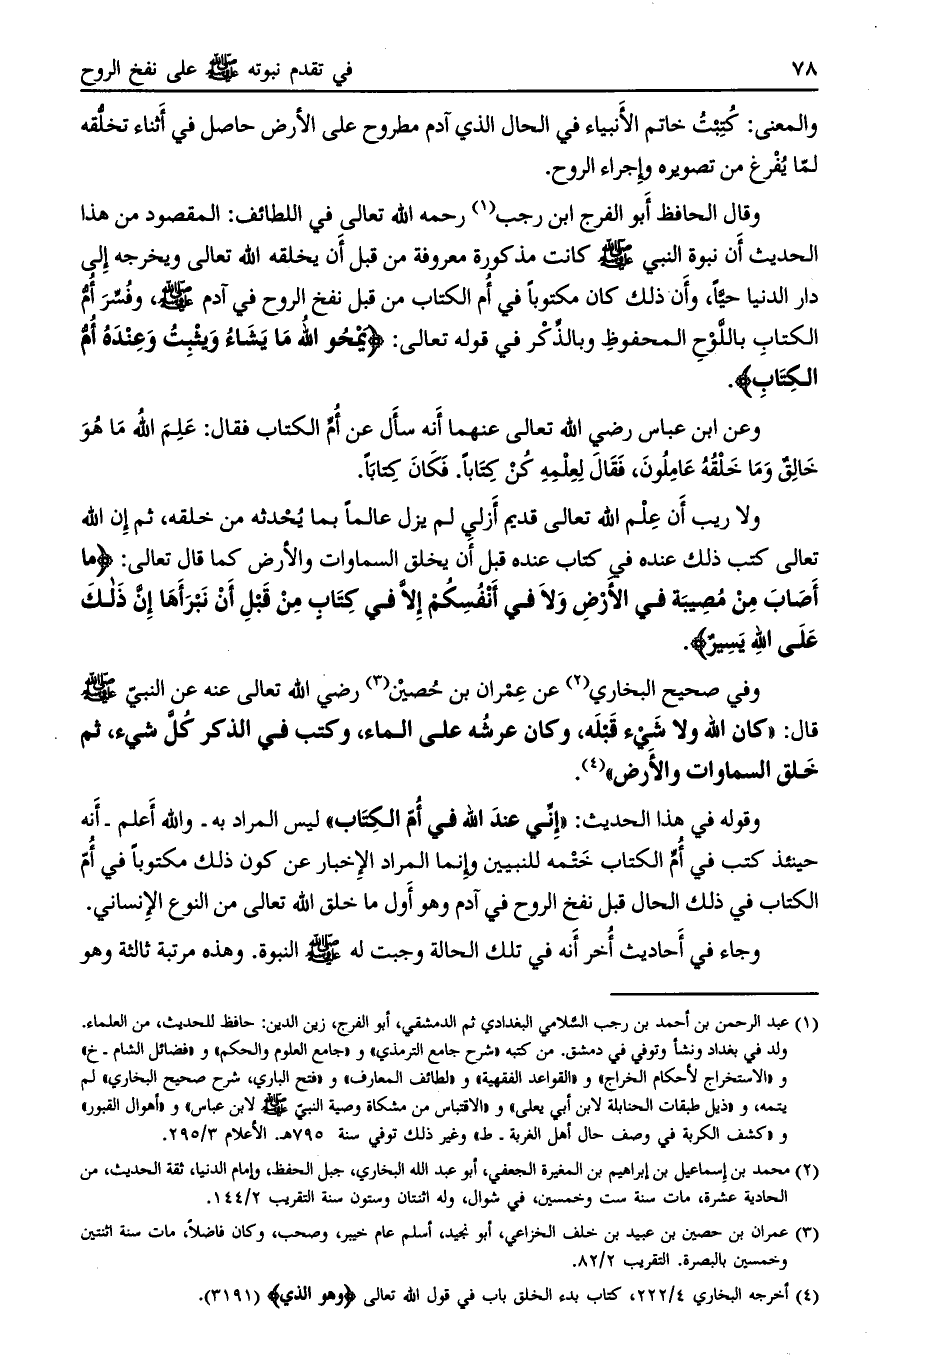 ٧٨ في تقدم نبوته ﷺ على نفخ الروح
والمعنى: كُتِبْتُ خاتم الأَنبياء في الحال الذي آدم مطروح على الأَرض حاصل في أَثناء تخلُّقه
لمّا يُفْرغ من تصويره وإِجراء الروح.
وقال الحافظ أَبو الفرج ابن رجب(١) رحمه الله تعالى في اللطائف: المقصود من هذا
الحديث أَن نبوة النبي ﷺ كانت مذكورة معروفة من قبل أَن يخلقه الله تعالى ويخرجه إِلى
دار الدنيا حيّاً، وأَن ذلك كان مكتوباً في أُم الكتاب من قبل نفخ الروح في آدم ﷺ، وفُسِّرَ أُمُّ
الكتابِ باللَّوْحِ المحفوظِ وبالذِّكْر في قوله تعالى: ﴿يَمْحُو اللهُ مَا يَشَاءُ وَيثْبِتُ وَعِنْدَهُ أُمُّ
الكِتَابِ﴾.
وعن ابن عباس رضي الله تعالى عنهما أَنه سأَل عن أُمّ الكتاب فقال: عَلِمَ اللهُ مَا هُوَ
خَالِقٌ وَمَا خَلْقُهُ عَامِلُونَ، فَقَالَ لِعِلْمِهِ كُنْ كِتَاباً. فَكَانَ كِتَابَاً.
ولا ريب أَن عِلْم الله تعالى قديم أَزلي لم يزل عالماً بما يُحْدثه من خلقه، ثم إِن الله
تعالى كتب ذلك عنده في كتاب عنده قبل أَن يخلق السماوات والأَرض كما قال تعالى: ﴿ما
أَصَابَ مِنْ مُصِيبَة فـي الأَرْضِ وَلاَ في أَنْفُسِكُمْ إِلاَّ في كِتَابٍ مِنْ قَبْلِ أَنْ نَبْرَأَهَا إِنَّ ذَلِكَ
عَلَى اللهِ يَسِيرٌ﴾.
وفي صحيح البخاري(٢) عن عِمْران بن حُصيْن(٣) رضي الله تعالى عنه عن النبيّ ﷺ
قال: «كان الله ولا شَيْء قَبْلَه، وكان عرشُه على الماء، وكتب في الذكر كُلَّ شيء، ثم
خَلق السماوات والأَرض»(٤).
وقوله في هذا الحديث: «إِنِّي عندَ الله في أُمّ الكِتَاب» ليس المراد به ـ والله أَعلم ـ أَنه
حينئذ كتب في أُمّ الكتاب خَتْمه للنبيين وإِنما المراد الإِخبار عن كون ذلك مكتوباً في أُمّ
الكتاب في ذلك الحال قبل نفخ الروح في آدم وهو أَول ما خلق الله تعالى من النوع الإِنساني.
وجاء في أَحاديث أُخر أَنه في تلك الحالة وجبت له ﷺ النبوة. وهذه مرتبة ثالثة وهو
(١) عبد الرحمن بن أحمد بن رجب السَّلامي البغدادي ثم الدمشقي، أبو الفرج، زين الدين: حافظ للحديث، من العلماء.
ولد في بغداد ونشأ وتوفي في دمشق. من كتبه «شرح جامع الترمذي» و «جامع العلوم والحكم» و «فضائل الشام ـ خ»
و «الاستخراج لأحكام الخراج» و «القواعد الفقهية» و «لطائف المعارف» و «فتح الباري، شرح صحيح البخاري» لم
يتمه، و «ذيل طبقات الحنابلة لابن أبي يعلى» و «الاقتباس من مشكاة وصية النبيّ ﷺ لابن عباس» و «أهوال القبور»
و «كشف الكربة في وصف حال أهل الغربة ـ ط» وغير ذلك توفي سنة ٧٩٥هـ. الأعلام ٢٩٥/٣.
(٢) محمد بن إسماعيل بن إبراهيم بن المغيرة الجعفي، أبو عبد الله البخاري، جبل الحفظ، وإمام الدنيا، ثقة الحديث، من
الحادية عشرة، مات سنة ست وخمسين، في شوال، وله اثنتان وستون سنة التقريب ١٤٤/٢.
(٣) عمران بن حصين بن عبيد بن خلف الخزاعي، أبو نجيد، أسلم عام خيبر، وصحب، وكان فاضلاً، مات سنة اثنتين
وخمسين بالبصرة. التقريب ٨٢/٢.
(٤) أخرجه البخاري ٢٢٢/٤، كتاب بدء الخلق باب في قول الله تعالى ﴿وهو الذي﴾ (٣١٩١).